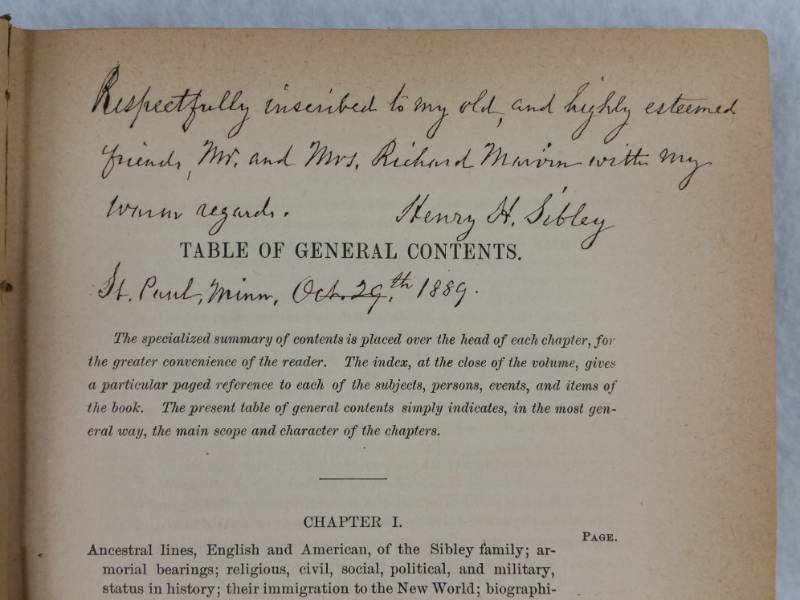 Respectfully inscribed to my old, and highly esteemed
friends, Mr. and Mrs. Richard Marvin with my
warm regards.
Henry H. Sibley
TABLE OF GENERAL CONTENTS.
St. Paul, Minn, Oct. 29,th 1889.
The specialized summary of contents is placed over the head of each chapter, for
the greater convenience of the reader. The index, at the close of the volume, gives
a particular paged reference to each of the subjects, persons, events, and items of
the book. The present table of general contents simply indicates, in the most gen-
eral way, the main scope and character of the chapters.
CHAPTER I.
PAGE.
Ancestral lines, English and American, of the Sibley family; ar-
morial bearings; religious, civil, social, political, and military,
status in history; their immigration to the New World; biographi-